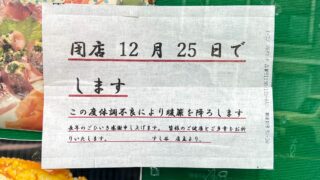 閉店 12 月 25 日で
します
この度体調不良により暖簾を降ろします
長年のごひいき感謝申し上げます。 皆様のご健康とご多幸をお祈
りいたします。
店主より。